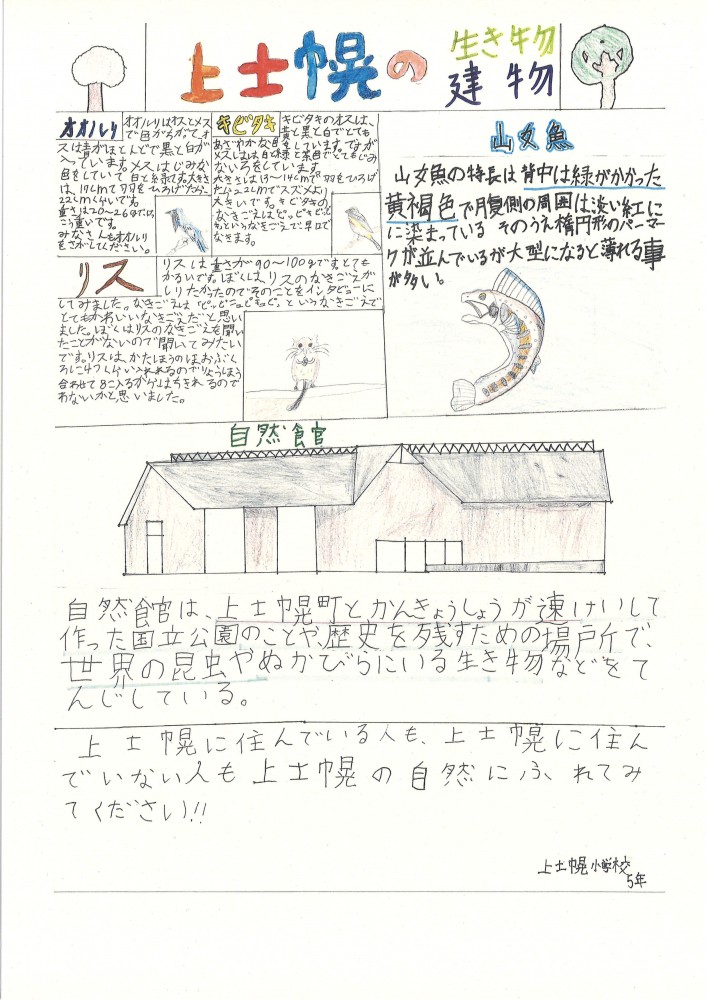 上士幌の
生き物
建物
オオルリ
オオルリはオスとメス
で目がちがってオ
スは青がほとんどで黒と白が
入っています。メスはじみな
22cmくらいです。
重さは20〜26gでけっ
こう重いです。
みなさんもオオルリ
をさがしてください。
キビタキ
キビタキのオスは、
黄と黒と白でとても
あざやかな色をしています。ですが
メスは白と緑と茶色でとてもじみ
ないろをしています。
大きさは13〜14cmで羽をひろげ
たら22cmでスズメより
大きいです。キビタキの
なきごえは
なきます。
リス
リスは重さが90〜100gですとても
かるいです。ぼくは、リスのなきごえが
しりたかったのでそのことをインタビューに
してみました。なきごえは
とてもかわいいなきごえだと思い
ました。ぼくはリスのなきごえを聞い
たことがないので聞いてみたい
です。リスは、かたほうのほおぶく
ろに4つくらい入れれるのでりょうほう
合わせて8こ入るからはちきれるので
わないかと思いました。
山女魚
山女魚の特長は背中は緑がかかった
黄褐色で月复側の周囲は淡い紅に
に染まっている そのうえ楕円形のパーマー
クが並んでいるが大型になると薄れる事
が多い。
自然館
自然館は、上士幌町とかんきょうしょうが連けいして
作った国立公園のことや、歴史を残すための場所で、
世界の昆虫やぬかびらにいる生き物などをて
んじしている。
上士幌に住んでいる人も、上士幌に住ん
でいない人も上士幌の自然にふれてみ
てください!!
上士幌小学校
5年